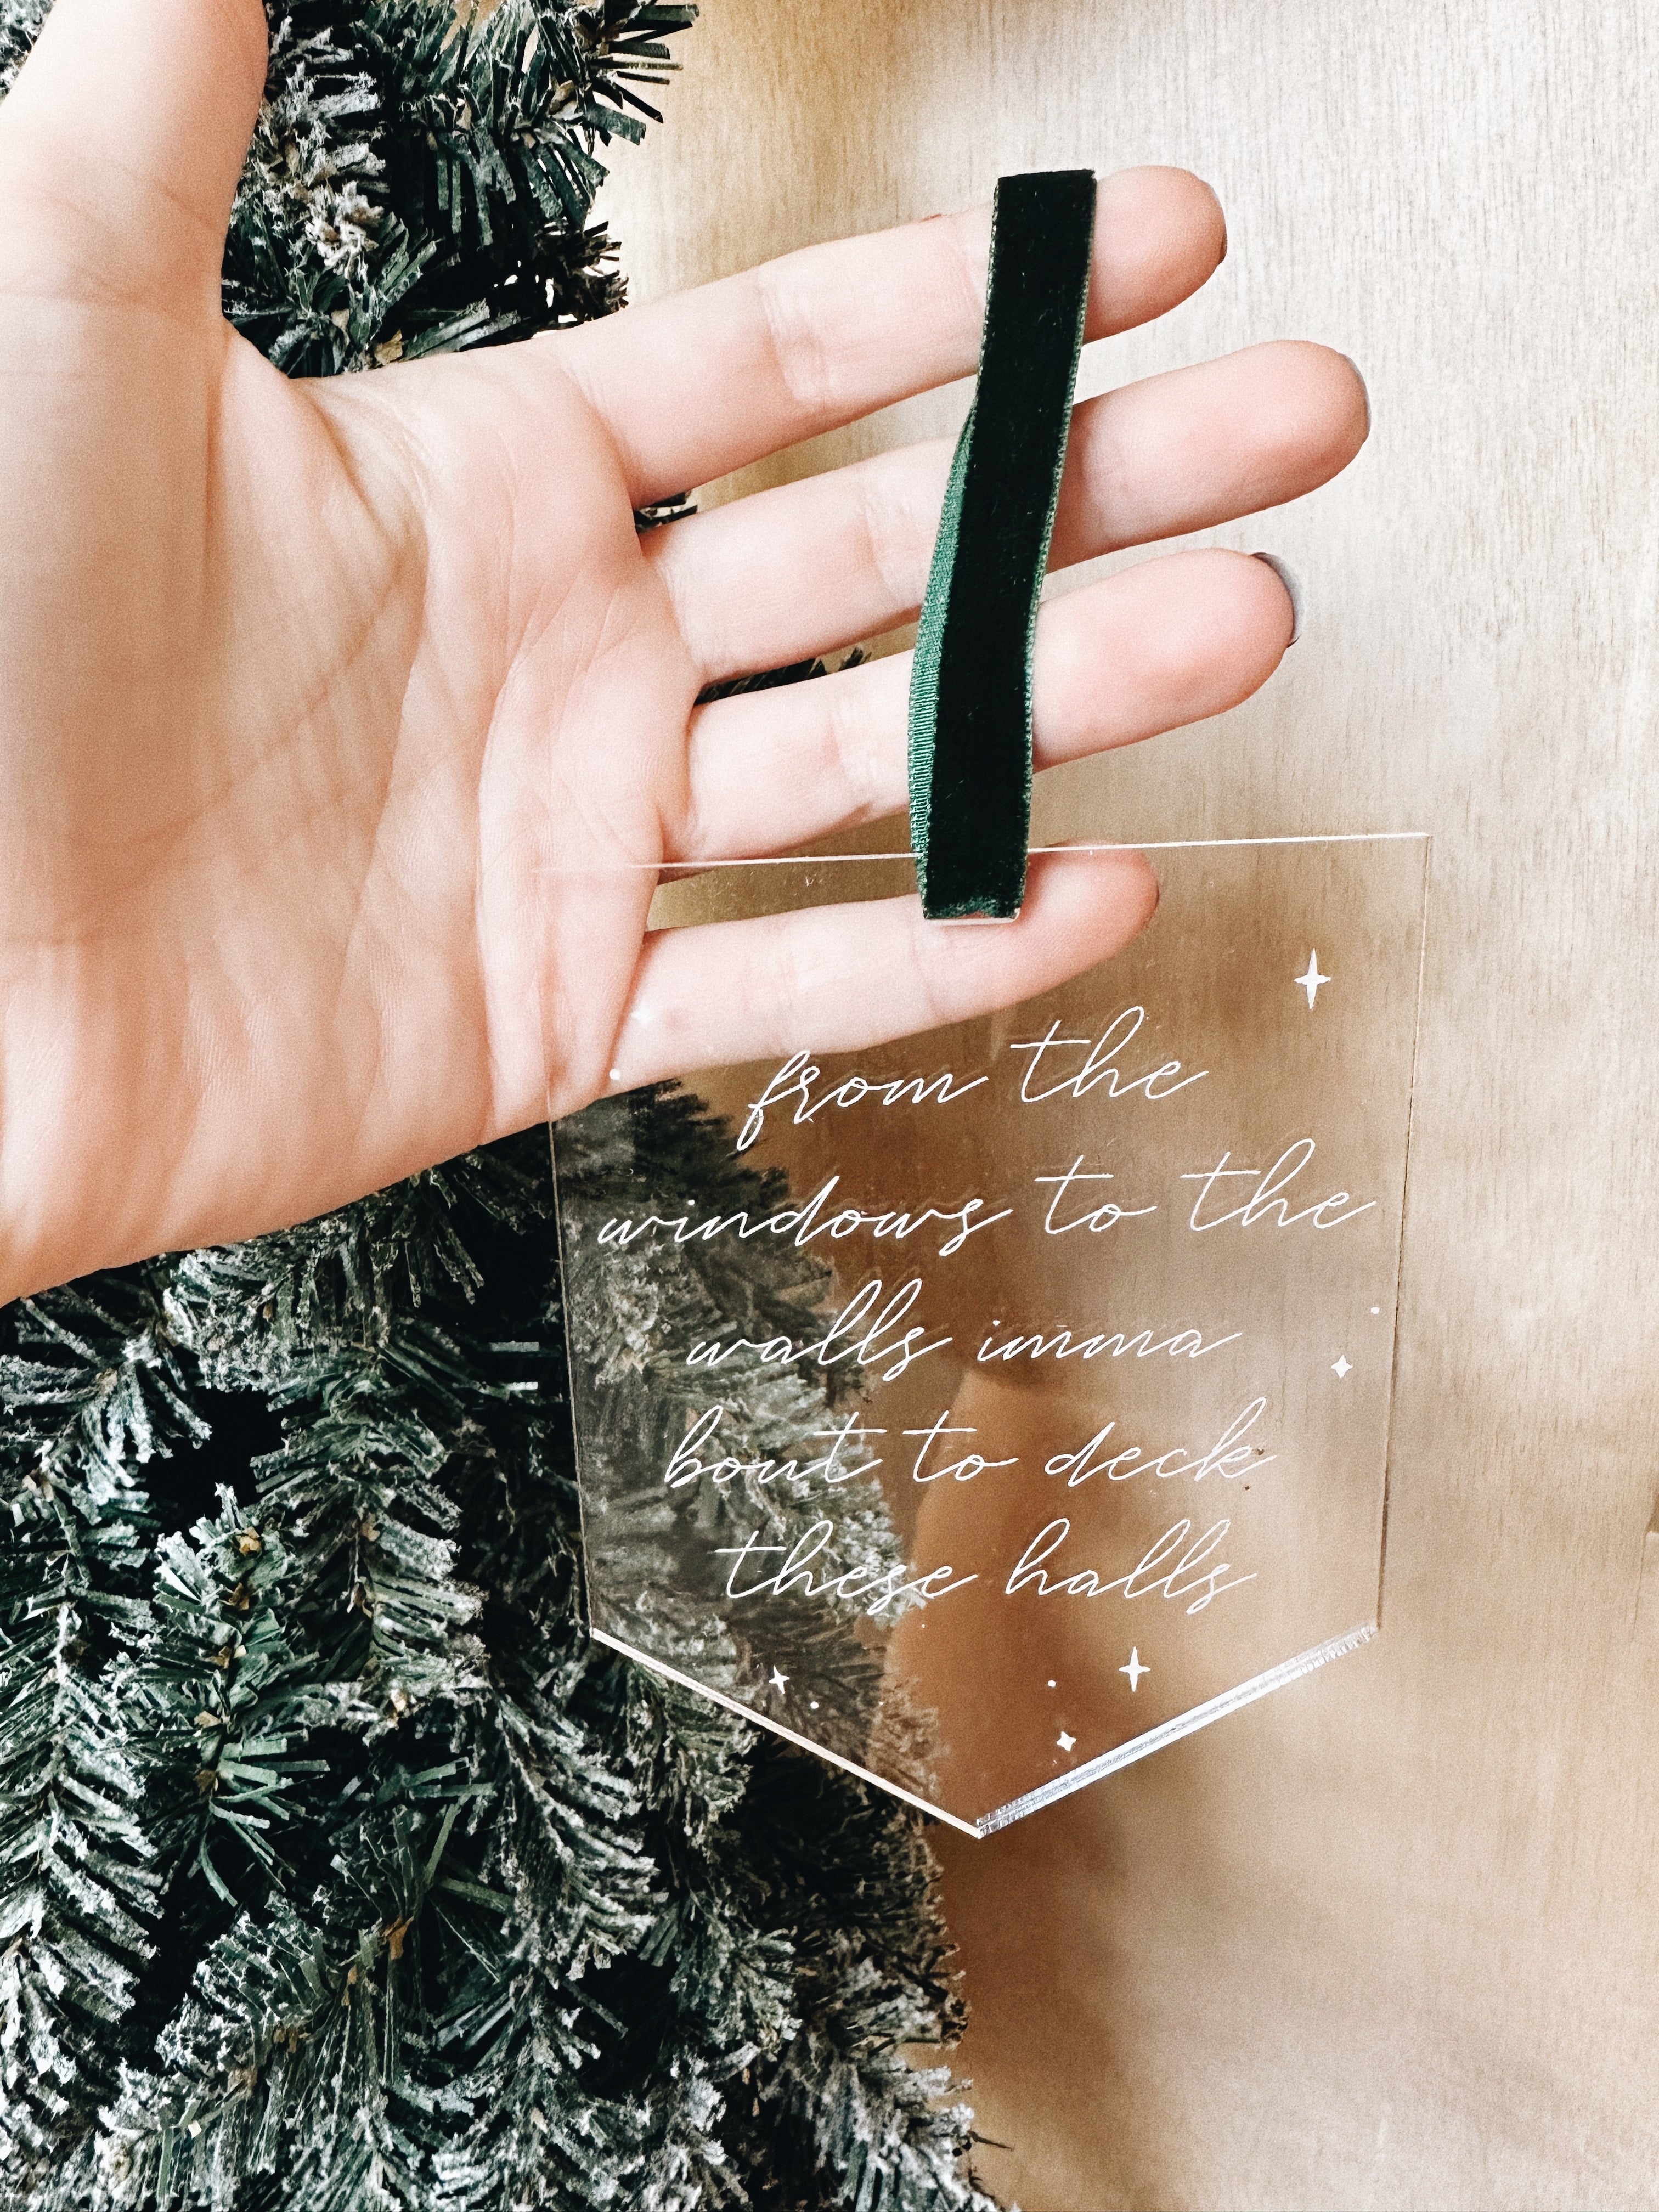 from the
windows to the
walls imma
bout to deck
these halls